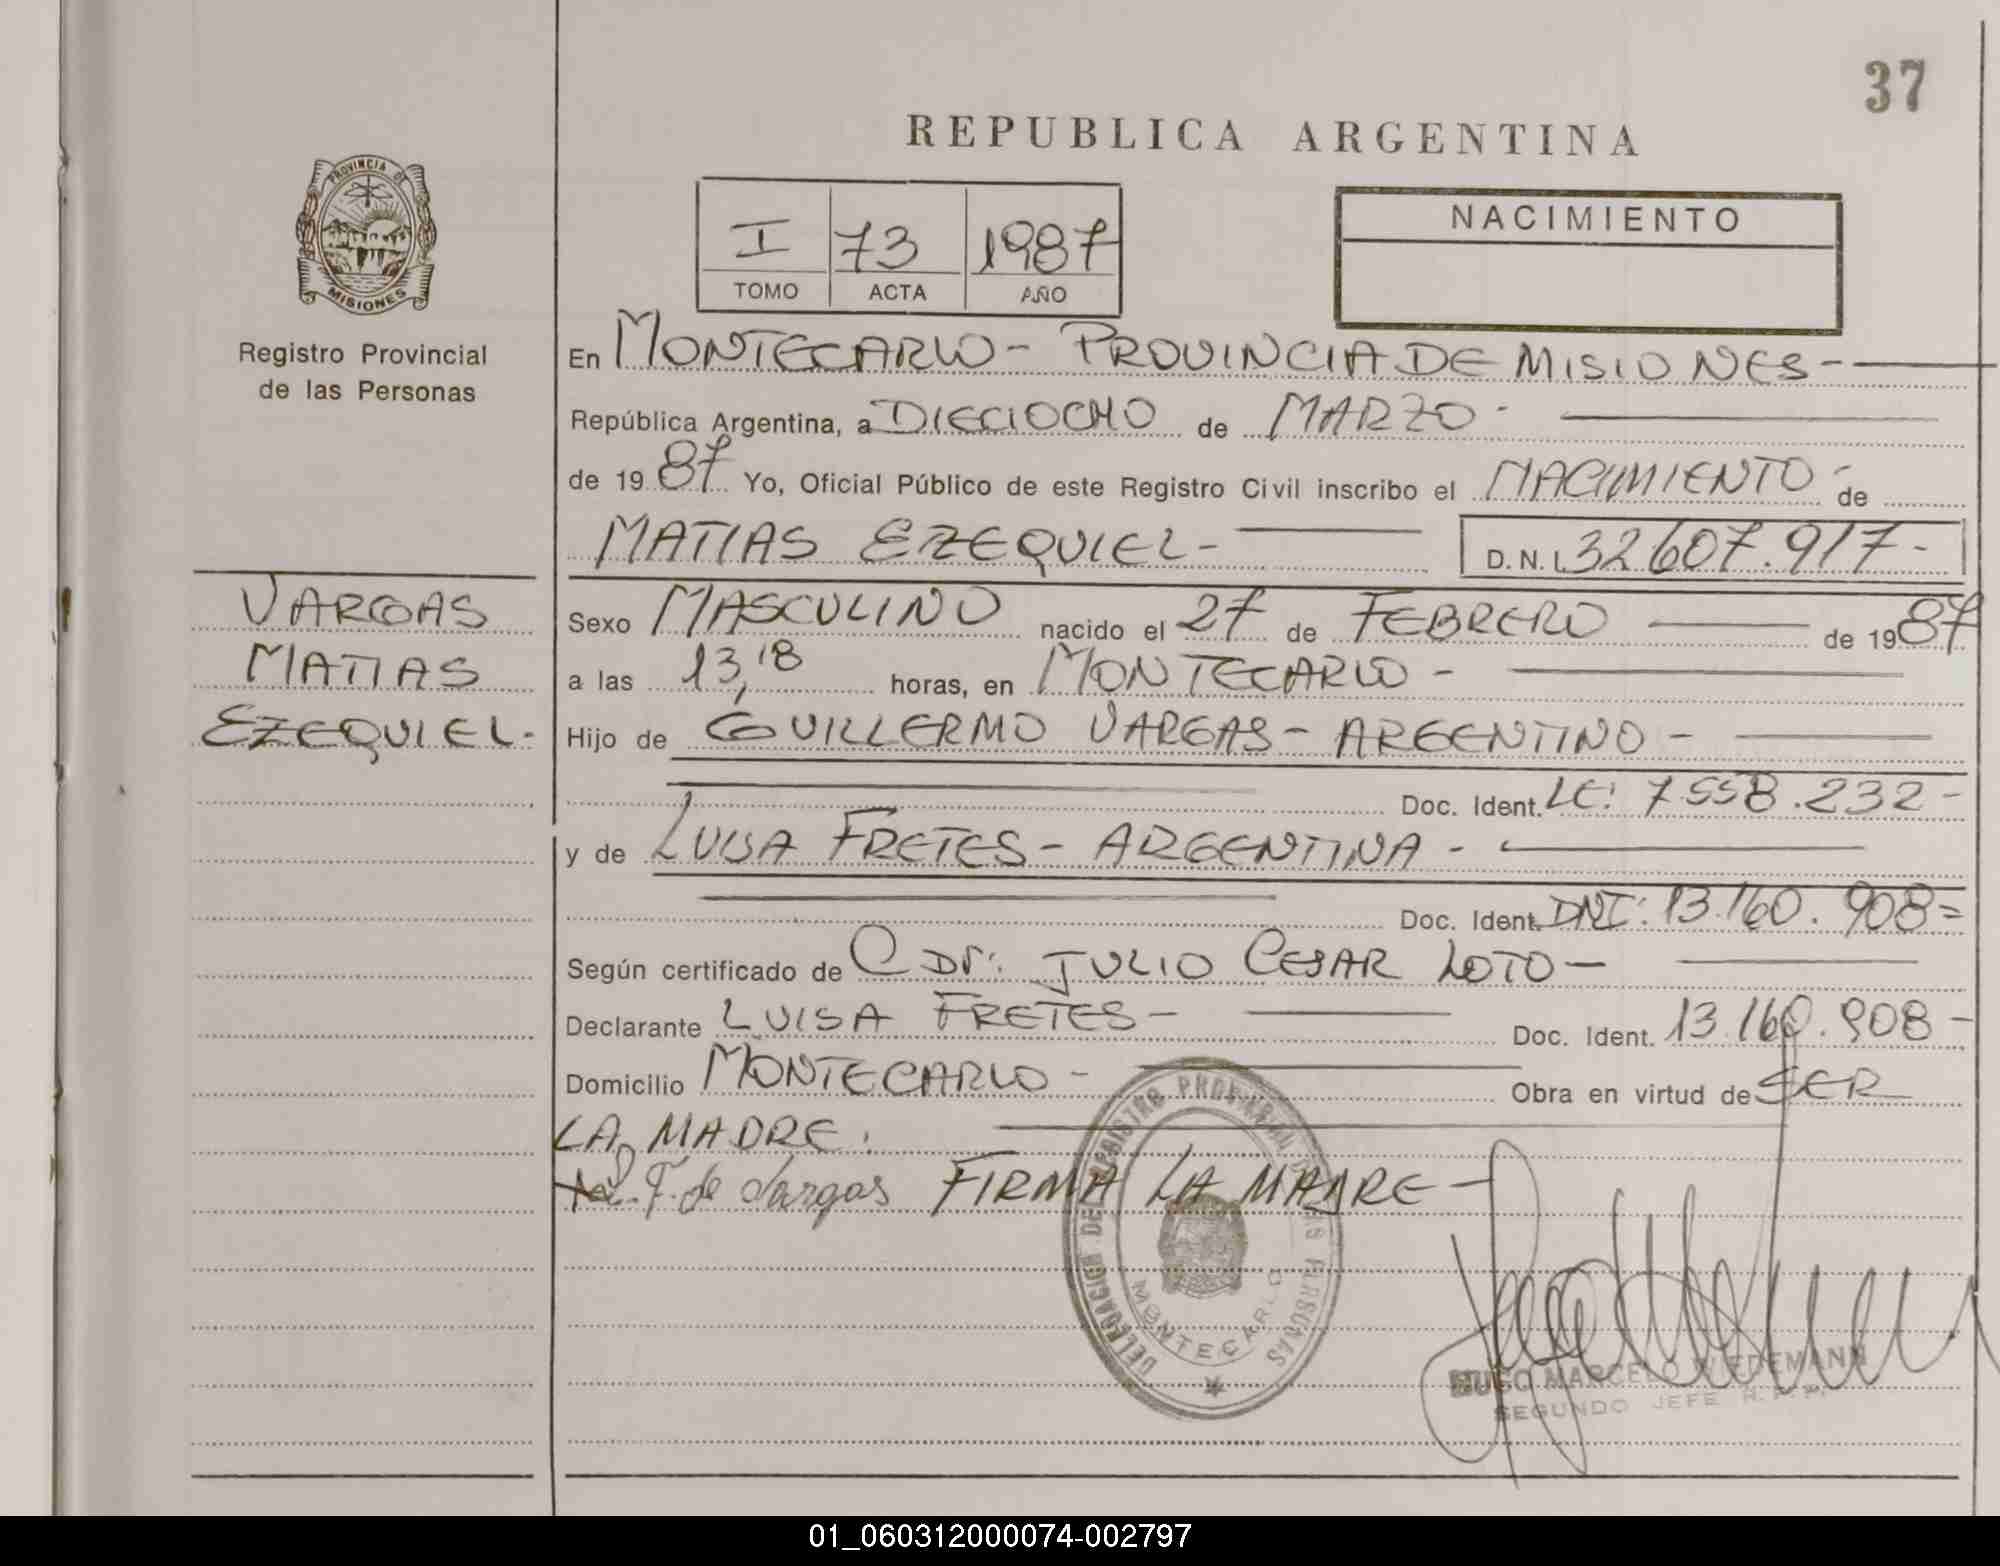 37
REPUBLICA ARGENTINA
PROVINCIA DE
MISIONES
Registro Provincial
de las Personas
I 73 1987
TOMO ACTA AÑO
NACIMIENTO
En MONTECARLO - PROVINCIA DE MISIONES -
República Argentina, a DIECIOCHO de MARZO -
de 19 87 Yo, Oficial Público de este Registro Civil inscribo el NACIMIENTO - de
MATIAS EZEQUIEL - D.N.I. 32607.917 -
VARGAS
MATIAS
EZEQUIEL -
Sexo MASCULINO nacido el 27 de FEBRERO de 19 87
a las 13,18 horas, en MONTECARLO -
Hijo de GUILLERMO VARGAS - ARGENTINO -
Doc. Ident. LE: 7.558.232 -
y de LUISA FRETES - ARGENTINA -
Doc. Ident. DNI: 13.160.908 =
Según certificado de Dr: JULIO CESAR LOTO -
Declarante LUISA FRETES - Doc. Ident. 13.160.908 -
Domicilio MONTECARLO - Obra en virtud de SER
LA MADRE.
L. F. de Vargas FIRMA LA MADRE -
DELEGACION DEL REGISTRO PROVINCIAL DE LAS PERSONAS
MONTECARLO
HUGO MARCELO WIEDEMANN
SEGUNDO JEFE R.P.P.
01_060312000074-002797